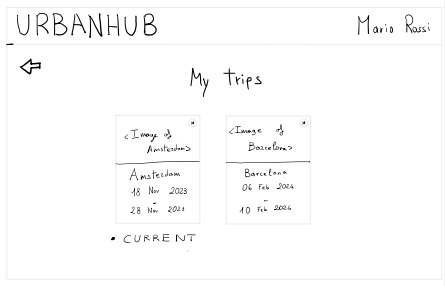 URBANHUB
Mario Rossi
My trips
x
<Image of
Amsterdam>
Amsterdam
18 Nov 2023
-
28 Nov 2023
• CURRENT
x
<Image of
Barcelona>
Barcelona
06 Feb 2024
-
10 Feb 2024